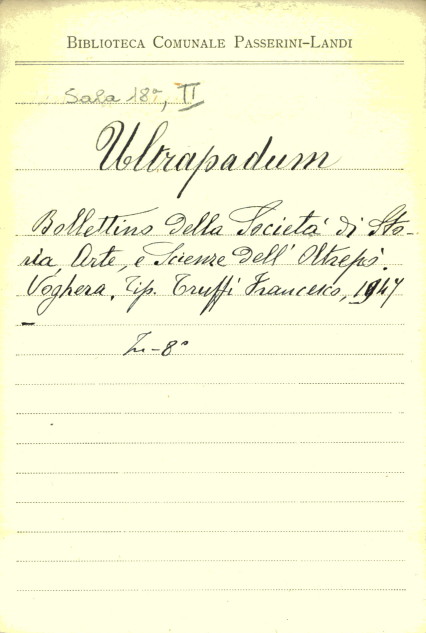 BIBLIOTECA COMUNALE PASSERINI-LANDI
Sala 18ª, II
Ultrapadum
Bollettino della Società di Sto-
ria, Arte, e Scienze dell' Oltrepò.
Voghera, Tip. Truffi Francesco, 1947
-
In-8°